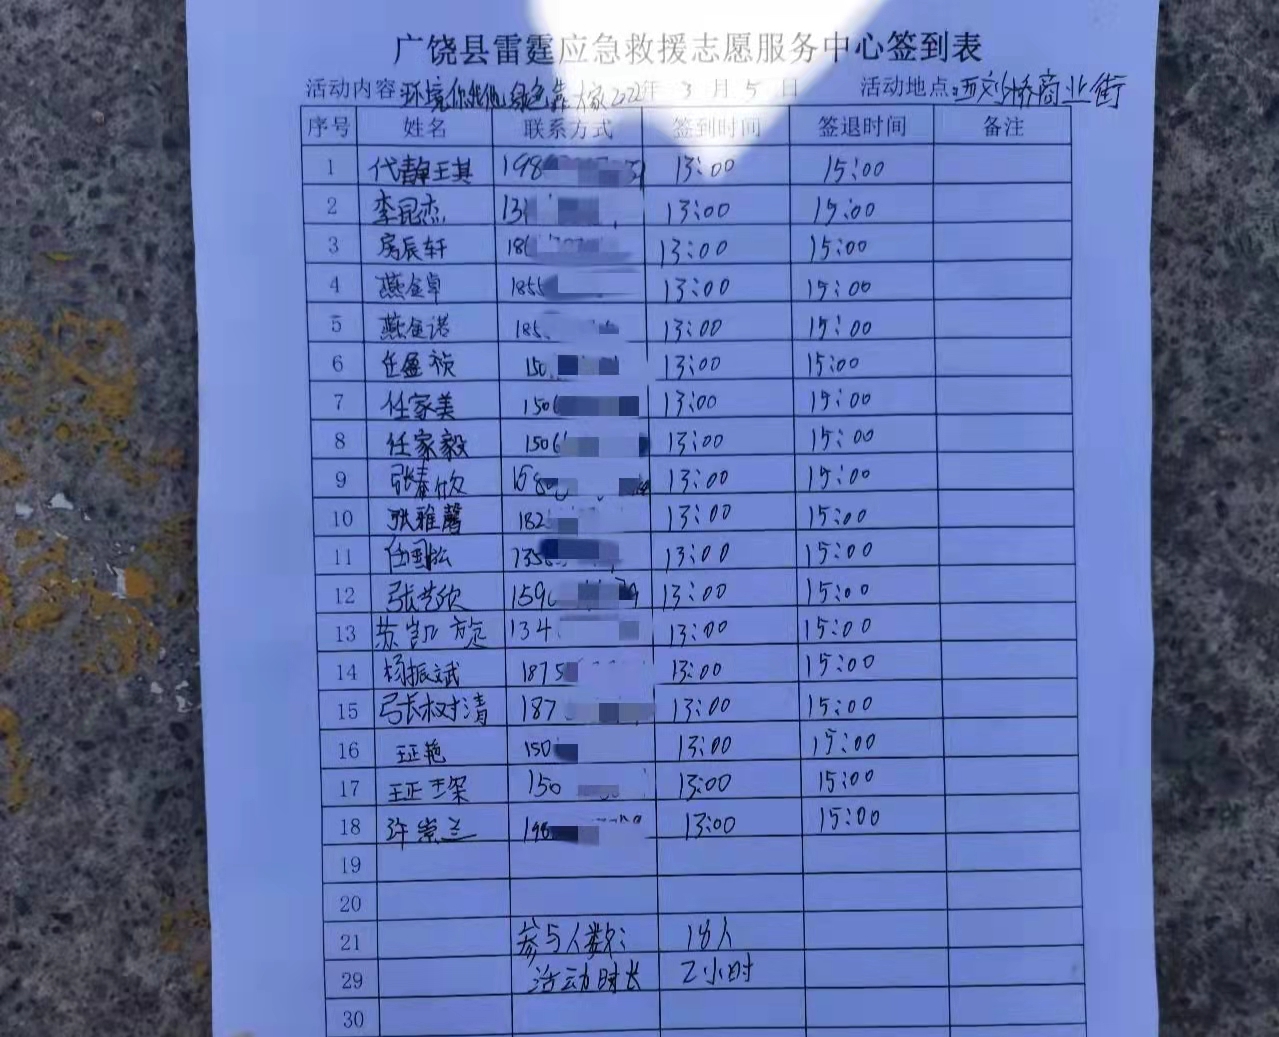 广饶县雷霆应急救援志愿服务中心签到表
活动内容:环境你我他 绿色靠大家 2022年 3 月 5 日 活动地点:西刘桥商业街
序号 姓名 联系方式 签到时间 签退时间 备注
1 代静王其 198 13:00 15:00
2 李昆杰 13 13:00 15:00
3 房辰轩 186 13:00 15:00
4 燕金卓 1855 13:00 15:00
5 燕金诺 185 13:00 15:00
6 任盈祯 150 13:00 15:00
7 任家美 1506 13:00 15:00
8 任家毅 1506 13:00 15:00
9 张春欣 158 13:00 15:00
10 张雅馨 182 13:00 15:00
11 任国松 1356 13:00 15:00
12 张艺欣 1590 13:00 15:00
13 苏凯旋 134 13:00 15:00
14 杨振斌 1875 13:00 15:00
15 张树清 187 13:00 15:00
16 王正艳 150 13:00 15:00
17 王正 150 13:00 15:00
18 许崇兰 198 13:00 15:00
19
20
21 参与人数: 18人
29 活动时长 2小时
30